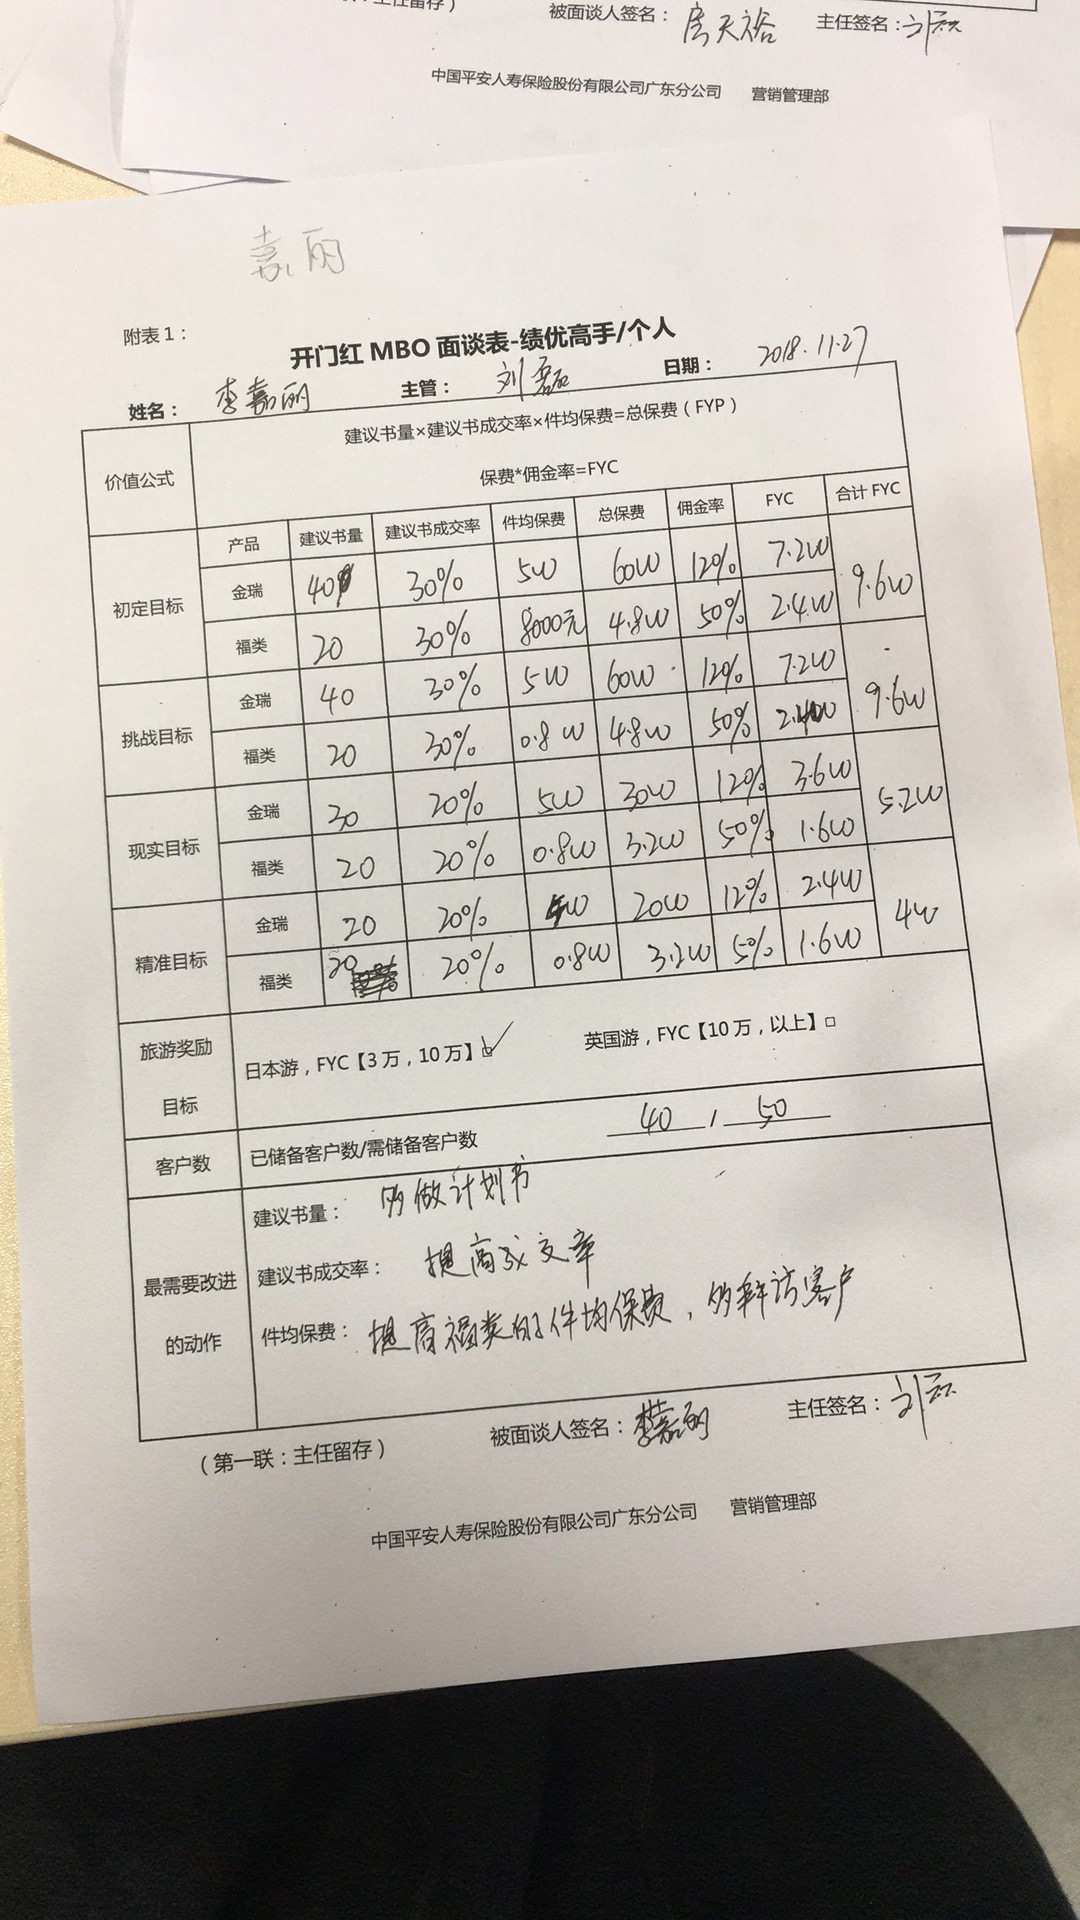 主任留存）
被面谈人签名：房天裕 主任签名：刘磊
中国平安人寿保险股份有限公司广东分公司 营销管理部
嘉丽
附表1：
开门红 MBO 面谈表-绩优高手/个人
姓名：李嘉丽 主管：刘磊 日期：2018.11.27
价值公式
建议书量×建议书成交率×件均保费=总保费（FYP）
保费*佣金率=FYC
产品 建议书量 建议书成交率 件均保费 总保费 佣金率 FYC 合计 FYC
初定目标 金瑞 40 30% 5W 60W 12% 7.2W 9.6W
福类 20 30% 8000元 4.8W 50% 2.4W
挑战目标 金瑞 40 30% 5W 60W 12% 7.2W 9.6W
福类 20 30% 0.8W 4.8W 50% 2.4W
现实目标 金瑞 30 20% 5W 30W 12% 3.6W 5.2W
福类 20 20% 0.8W 3.2W 50% 1.6W
精准目标 金瑞 20 20% 5W 20W 12% 2.4W 4W
福类 20 20% 0.8W 3.2W 5% 1.6W
旅游奖励目标 日本游，FYC【3万，10万】☑ 英国游，FYC【10万，以上】□
客户数 已储备客户数/需储备客户数 40 / 50
最需要改进的动作
建议书量：多做计划书
建议书成交率：提高成交率
件均保费：提高福类的件均保费，多拜访客户
（第一联：主任留存） 被面谈人签名：李嘉丽 主任签名：刘磊
中国平安人寿保险股份有限公司广东分公司 营销管理部